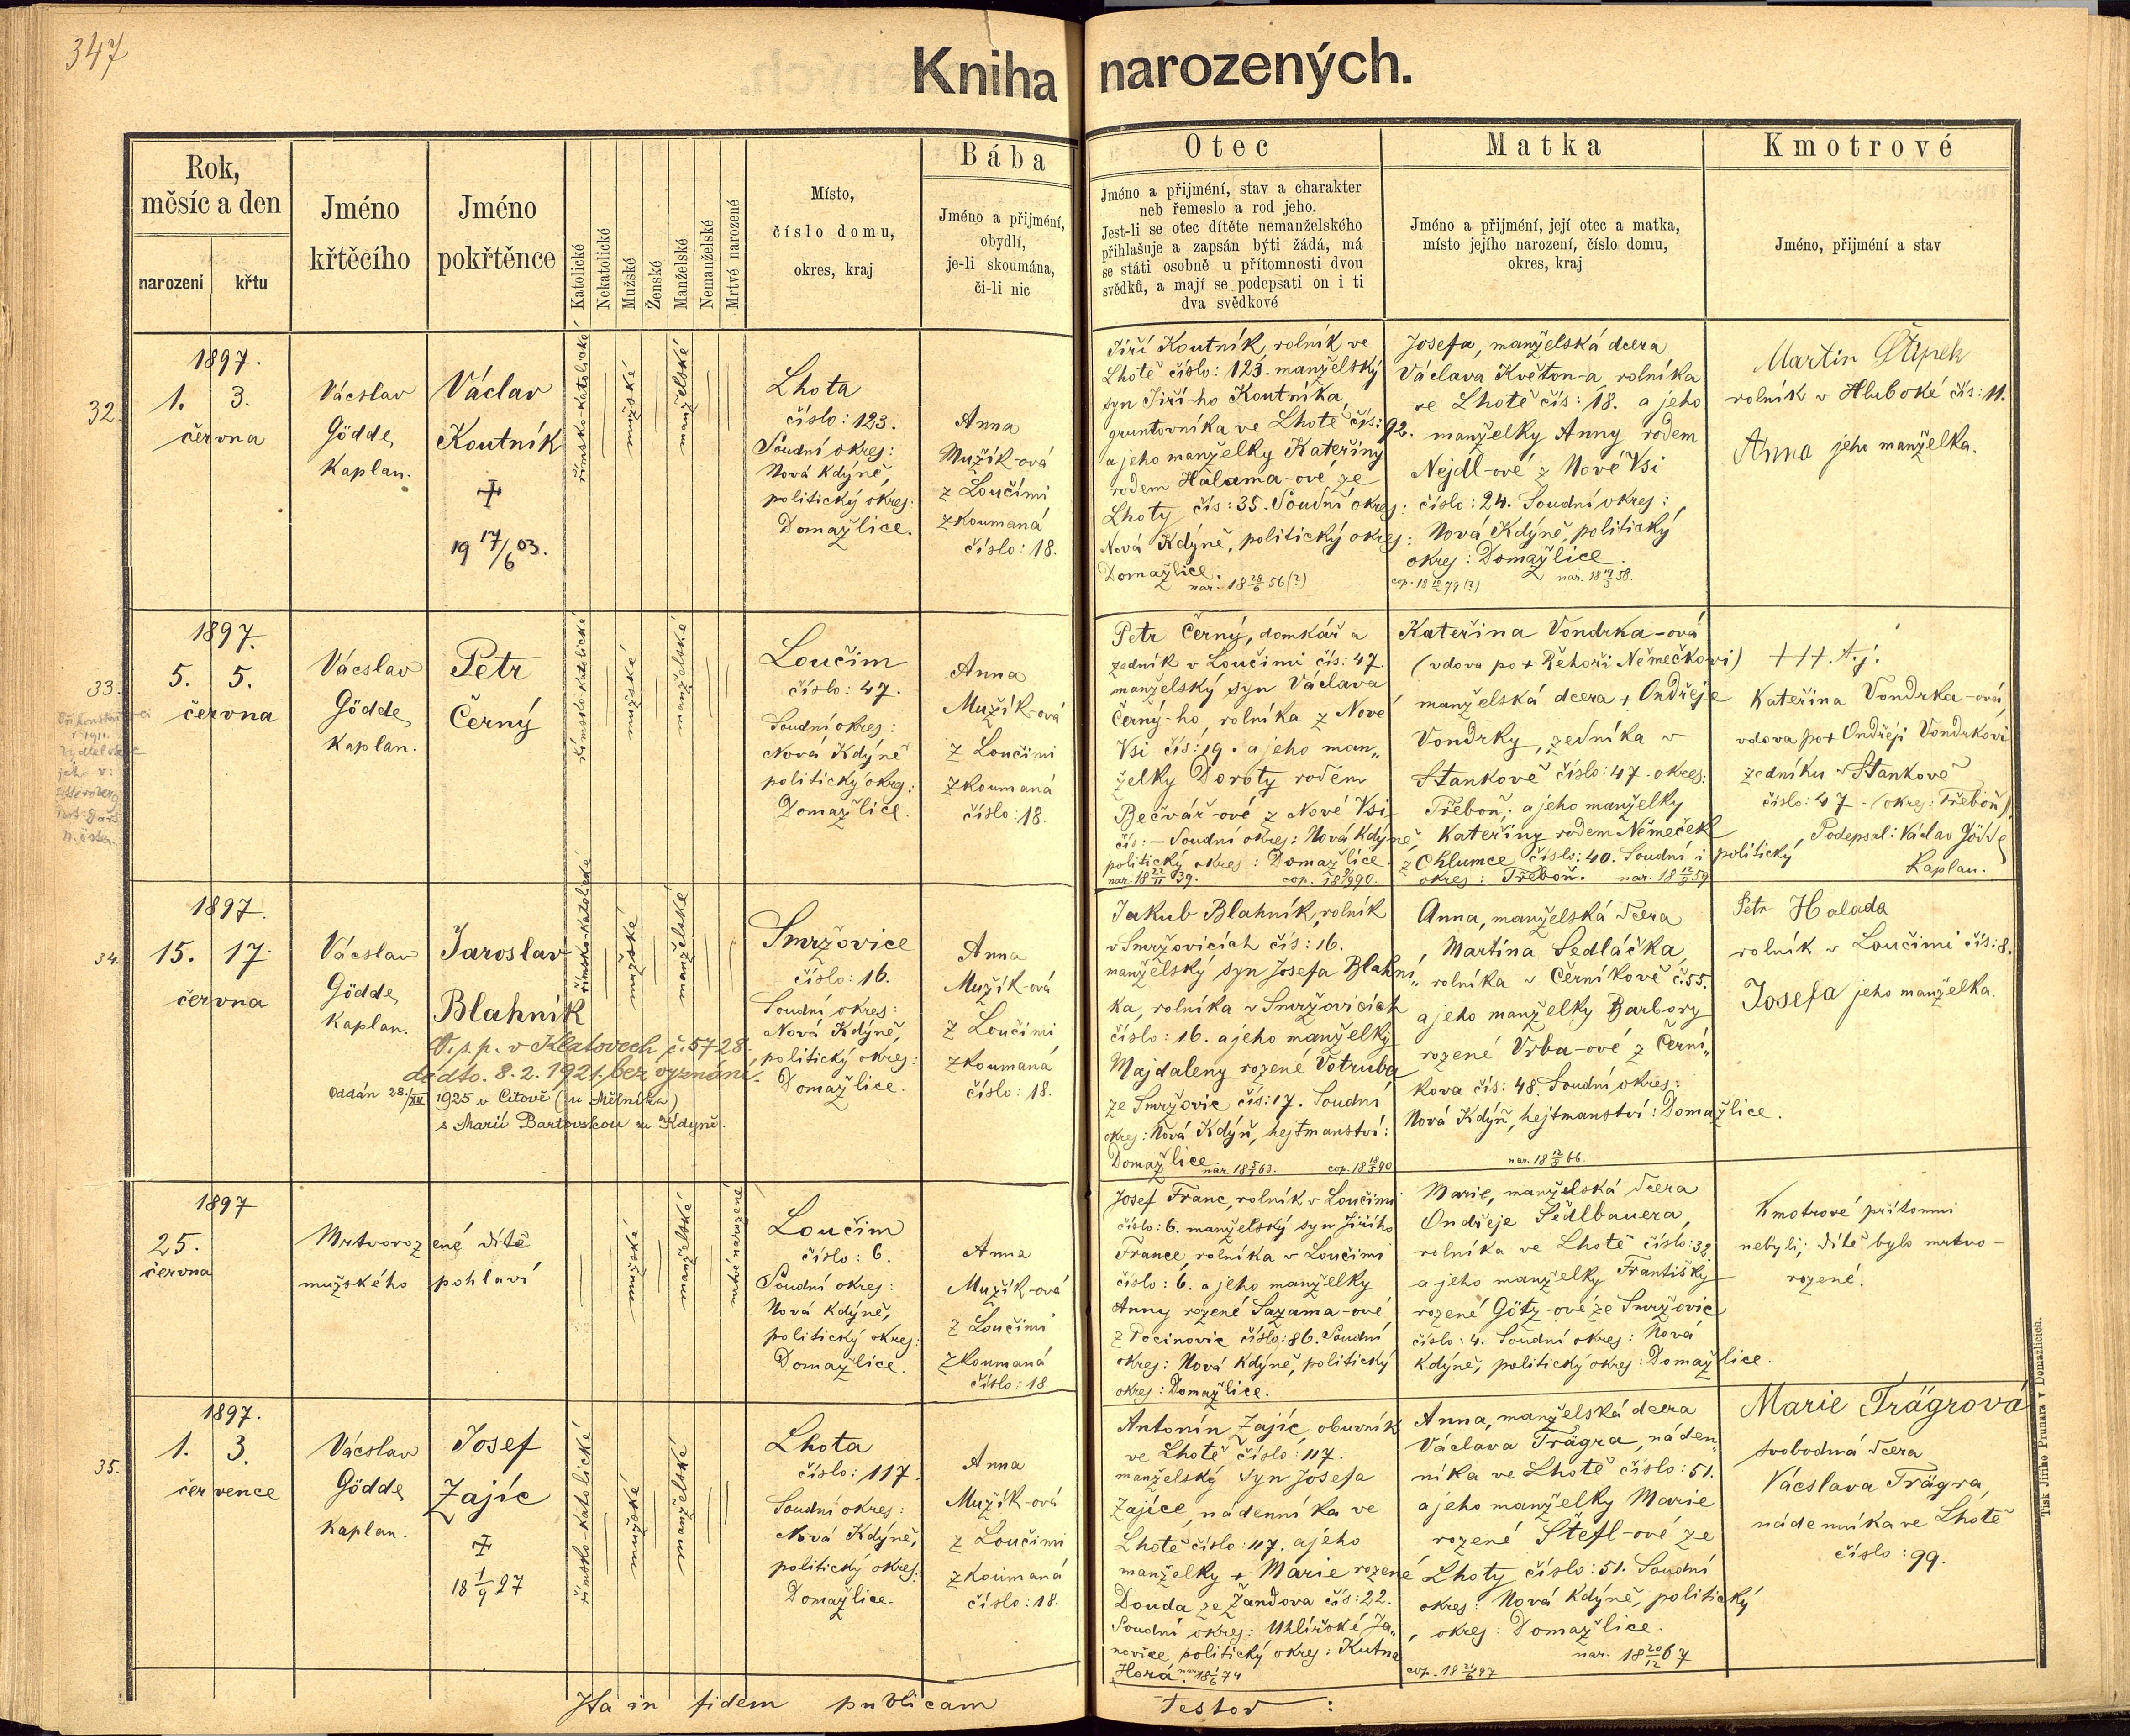 347
Kniha narozených.
Rok,
měsíc a den
narození
křtu
Jméno
křtěcího
Jméno
pokřtěnce
Katolické
Nekatolické
Mužské
Ženské
Manželské
Nemanželské
Mrtvé narozené
Místo,
číslo domu,
okres, kraj
Bába
Jméno a přijmění,
obydlí,
je-li skoumána,
či-li nic
Otec
Jméno a přijmění, stav a charakter
neb řemeslo a rod jeho.
Jest-li se otec dítěte nemanželského
přihlašuje a zapsán býti žádá, má
se státi osobně u přítomnosti dvou
svědků, a mají se podepsati on i ti
dva svědkové
Matka
Jméno a přijmění, její otec a matka,
místo jejího narození, číslo domu,
okres, kraj
Kmotrové
Jméno, přijmění a stav
32.
1897.
1. 3.
června
Václav
Gödde,
Kaplan.
Václav
Koutník
19 17/6 03.
římsko-katolické
mužské
manželské
Lhota
číslo: 123.
Soudní okres:
Nová Kdýně,
politický okres:
Domažlice.
Anna
Mužík-ová
z Loučimi
zkoumaná
číslo: 18.
Jiří Koutník, rolník ve
Lhotě číslo: 123. manželský
syn Jiří-ho Koutníka,
gruntovníka ve Lhotě čís: 92.
a jeho manželky Kateřiny
rodem Halama-ové ze
Lhoty čís: 35. Soudní okres:
Nová Kdýně, politický okres:
Domažlice.
nar. 18 28/6 56 (?)
Josefa, manželská dcera
Václava Květon-a, rolníka
ve Lhotě čís: 18. a jeho
manželky Anny rodem
Nejdl-ové z Nové Vsi
číslo: 24. Soudní okres:
Nová Kdýně, politický
okres: Domažlice.
nar. 18 19/3 58.
Martin Štípek
rolník v Hluboké čís: 11.
Anna jeho manželka.
33.
1897.
5. 5.
června
Václav
Gödde,
Kaplan.
Petr
Černý
římsko-katolické
mužské
manželské
Loučim
číslo: 47.
Soudní okres:
Nová Kdýně
politický okres:
Domažlice.
Anna
Mužík-ová
z Loučimi
zkoumaná
číslo: 18.
Petr Černý, domkář a
zedník v Loučimi čís: 47.
manželský syn Václava
Černý-ho, rolníka z Nové
Vsi čís: 19. a jeho man„
želky Doroty rodem
Bečvář-ové z Nové Vsi
čís: – Soudní okres: Nová Kdýně,
politický okres: Domažlice.
nar. 18 22/11 39.
Kateřina Vondrka-ová
(vdova po + Řehoři Němečkovi)
manželská dcera + Ondřeje
Vondrky, zedníka v
Stankově číslo: 47. okres:
Třeboň; a jeho manželky
Kateřiny rodem Němeček
z Chlumce číslo: 40. Soudní i politický
okres: Třeboň.
+++ t.j.
Kateřina Vondrka-ová,
vdova po + Ondřeji Vondrkovi
zedníku v Stankově
číslo: 47. (okres: Třeboň)
Podepsal: Václav Gödde
Kaplan.
34.
1897.
15. 17.
června
Václav
Gödde,
Kaplan.
Jaroslav
Blahník
O.s.p. v Klatovech č. 5728
de dto. 8. 2. 1921. bez vyznání.
Oddán 28./XII 1925 v Citově (u Mělníka)
s Marií Bartovskou ze Kdyně.
římsko-katolické
mužské
manželské
Smržovice
číslo: 16.
Soudní okres:
Nová Kdýně,
politický okres:
Domažlice.
Anna
Mužík-ová
z Loučimi
zkoumaná
číslo: 18.
Jakub Blahník, rolník
v Smržovicích čís: 16.
manželský syn Josefa Blahní„
ka, rolníka v Smržovicích
číslo: 16. a jeho manželky
Majdaleny rozené Votruba
ze Smržovic čís: 17. Soudní
okres: Nová Kdýň, hejtmanství:
Domažlice
Anna, manželská dcera
Martina Sedláčka,
rolníka v Černíkově č. 55.
a jeho manželky Barbory
rozené Vrba-ové z Černí„
kova čís: 48. Soudní okres:
Nová Kdýň, hejtmanství: Domažlice.
Petr Halada
rolník v Loučimi čís: 8.
Josefa jeho manželka.
1897
25.
června
Mrtvorozené dítě
mužského pohlaví
mužské
manželské
mrtvé narozené
Loučim
číslo: 6.
Soudní okres:
Nová Kdýně,
politický okres:
Domažlice.
Anna
Mužík-ová
z Loučimi
zkoumaná
číslo: 18.
Josef Franc, rolník v Loučimi
číslo: 6. manželský syn Jiřího
France, rolníka v Loučimi
číslo: 6. a jeho manželky
Anny rozené Sazama-ové
z Pocinovic číslo: 86. Soudní
okres: Nová Kdýně, politický
okres: Domažlice.
Marie, manželská dcera
Ondřeje Sedlbauera,
rolníka ve Lhotě číslo: 32
a jeho manželky Františky
rozené Götz-ové ze Smržovic
číslo: 4. Soudní okres: Nová
Kdýně, politický okres: Domažlice.
Kmotrové přítomni
nebyli; dítě bylo mrtvo-
rozené.
35.
1897.
1. 3.
července
Václav
Gödde,
Kaplan.
Josef
Zajíc
18 1/9 27
římsko-katolické
mužské
manželské
Lhota
číslo: 117.
Soudní okres:
Nová Kdýně,
politický okres:
Domažlice.
Anna
Mužík-ová
z Loučimi
zkoumaná
číslo: 18.
Antonín Zajíc, obuvník
ve Lhotě číslo: 117.
manželský syn Josefa
Zajíce, nádenníka ve
Lhotě číslo: 117. a jeho
manželky + Marie rozené
Douda ze Žandova čís: 22.
Soudní okres: Uhlířské Ja„
novice, politický okres: Kutna
Hora.
Anna, manželská dcera
Václava Trägra, náden„
níka ve Lhotě číslo: 51.
a jeho manželky Marie
rozené Štefl-ové ze
Lhoty číslo: 51. Soudní
okres: Nová Kdýně, politický
okres: Domažlice.
nar. 18 20/12 67
Marie Trägrová
svobodná dcera
Václava Trägra,
nádenníka ve Lhotě
číslo: 99.
Ita in fidem publicam testor:
Tisk Jiřího Prunara v Domažlicích.